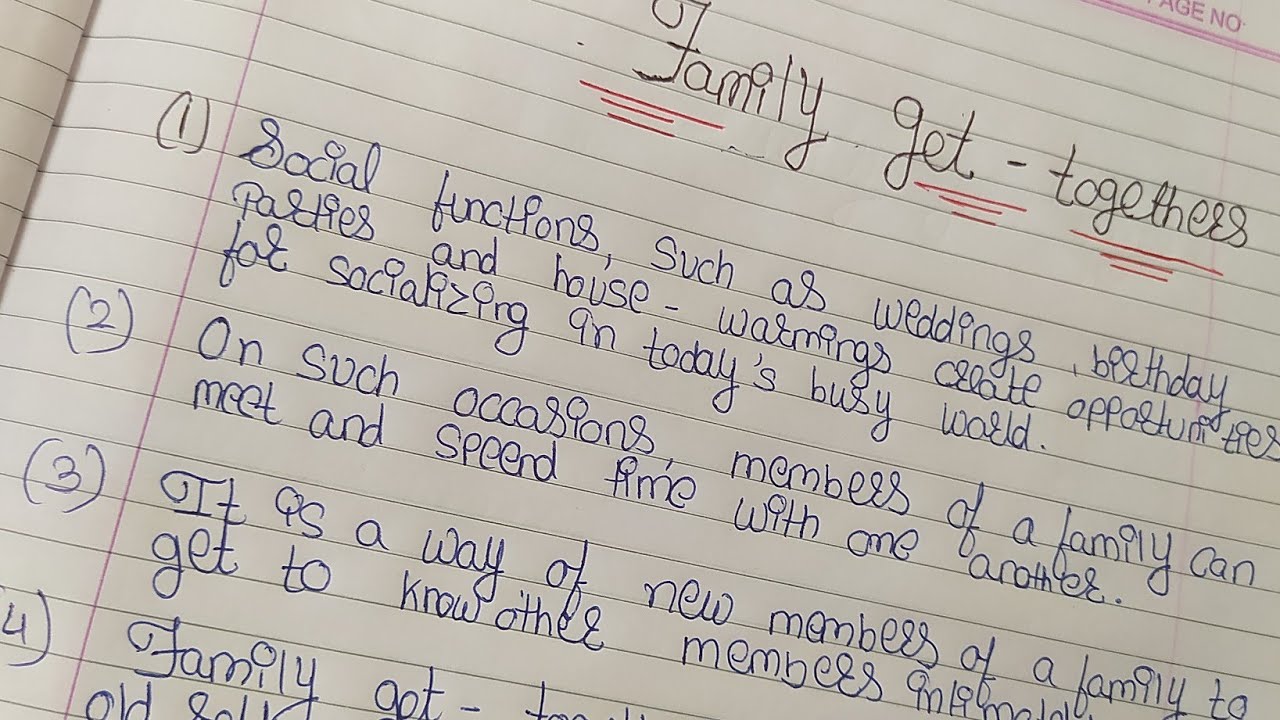 PAGE NO
Family get-togethers
(1) Social functions, such as weddings, birthday
parties and house-warmings create opportunities
for socializing in today's busy world.
(2) On such occasions, members of a family can
meet and speend time with one another.
(3) It is a way of new members of a family to
get to know other members
4) Family get-
old